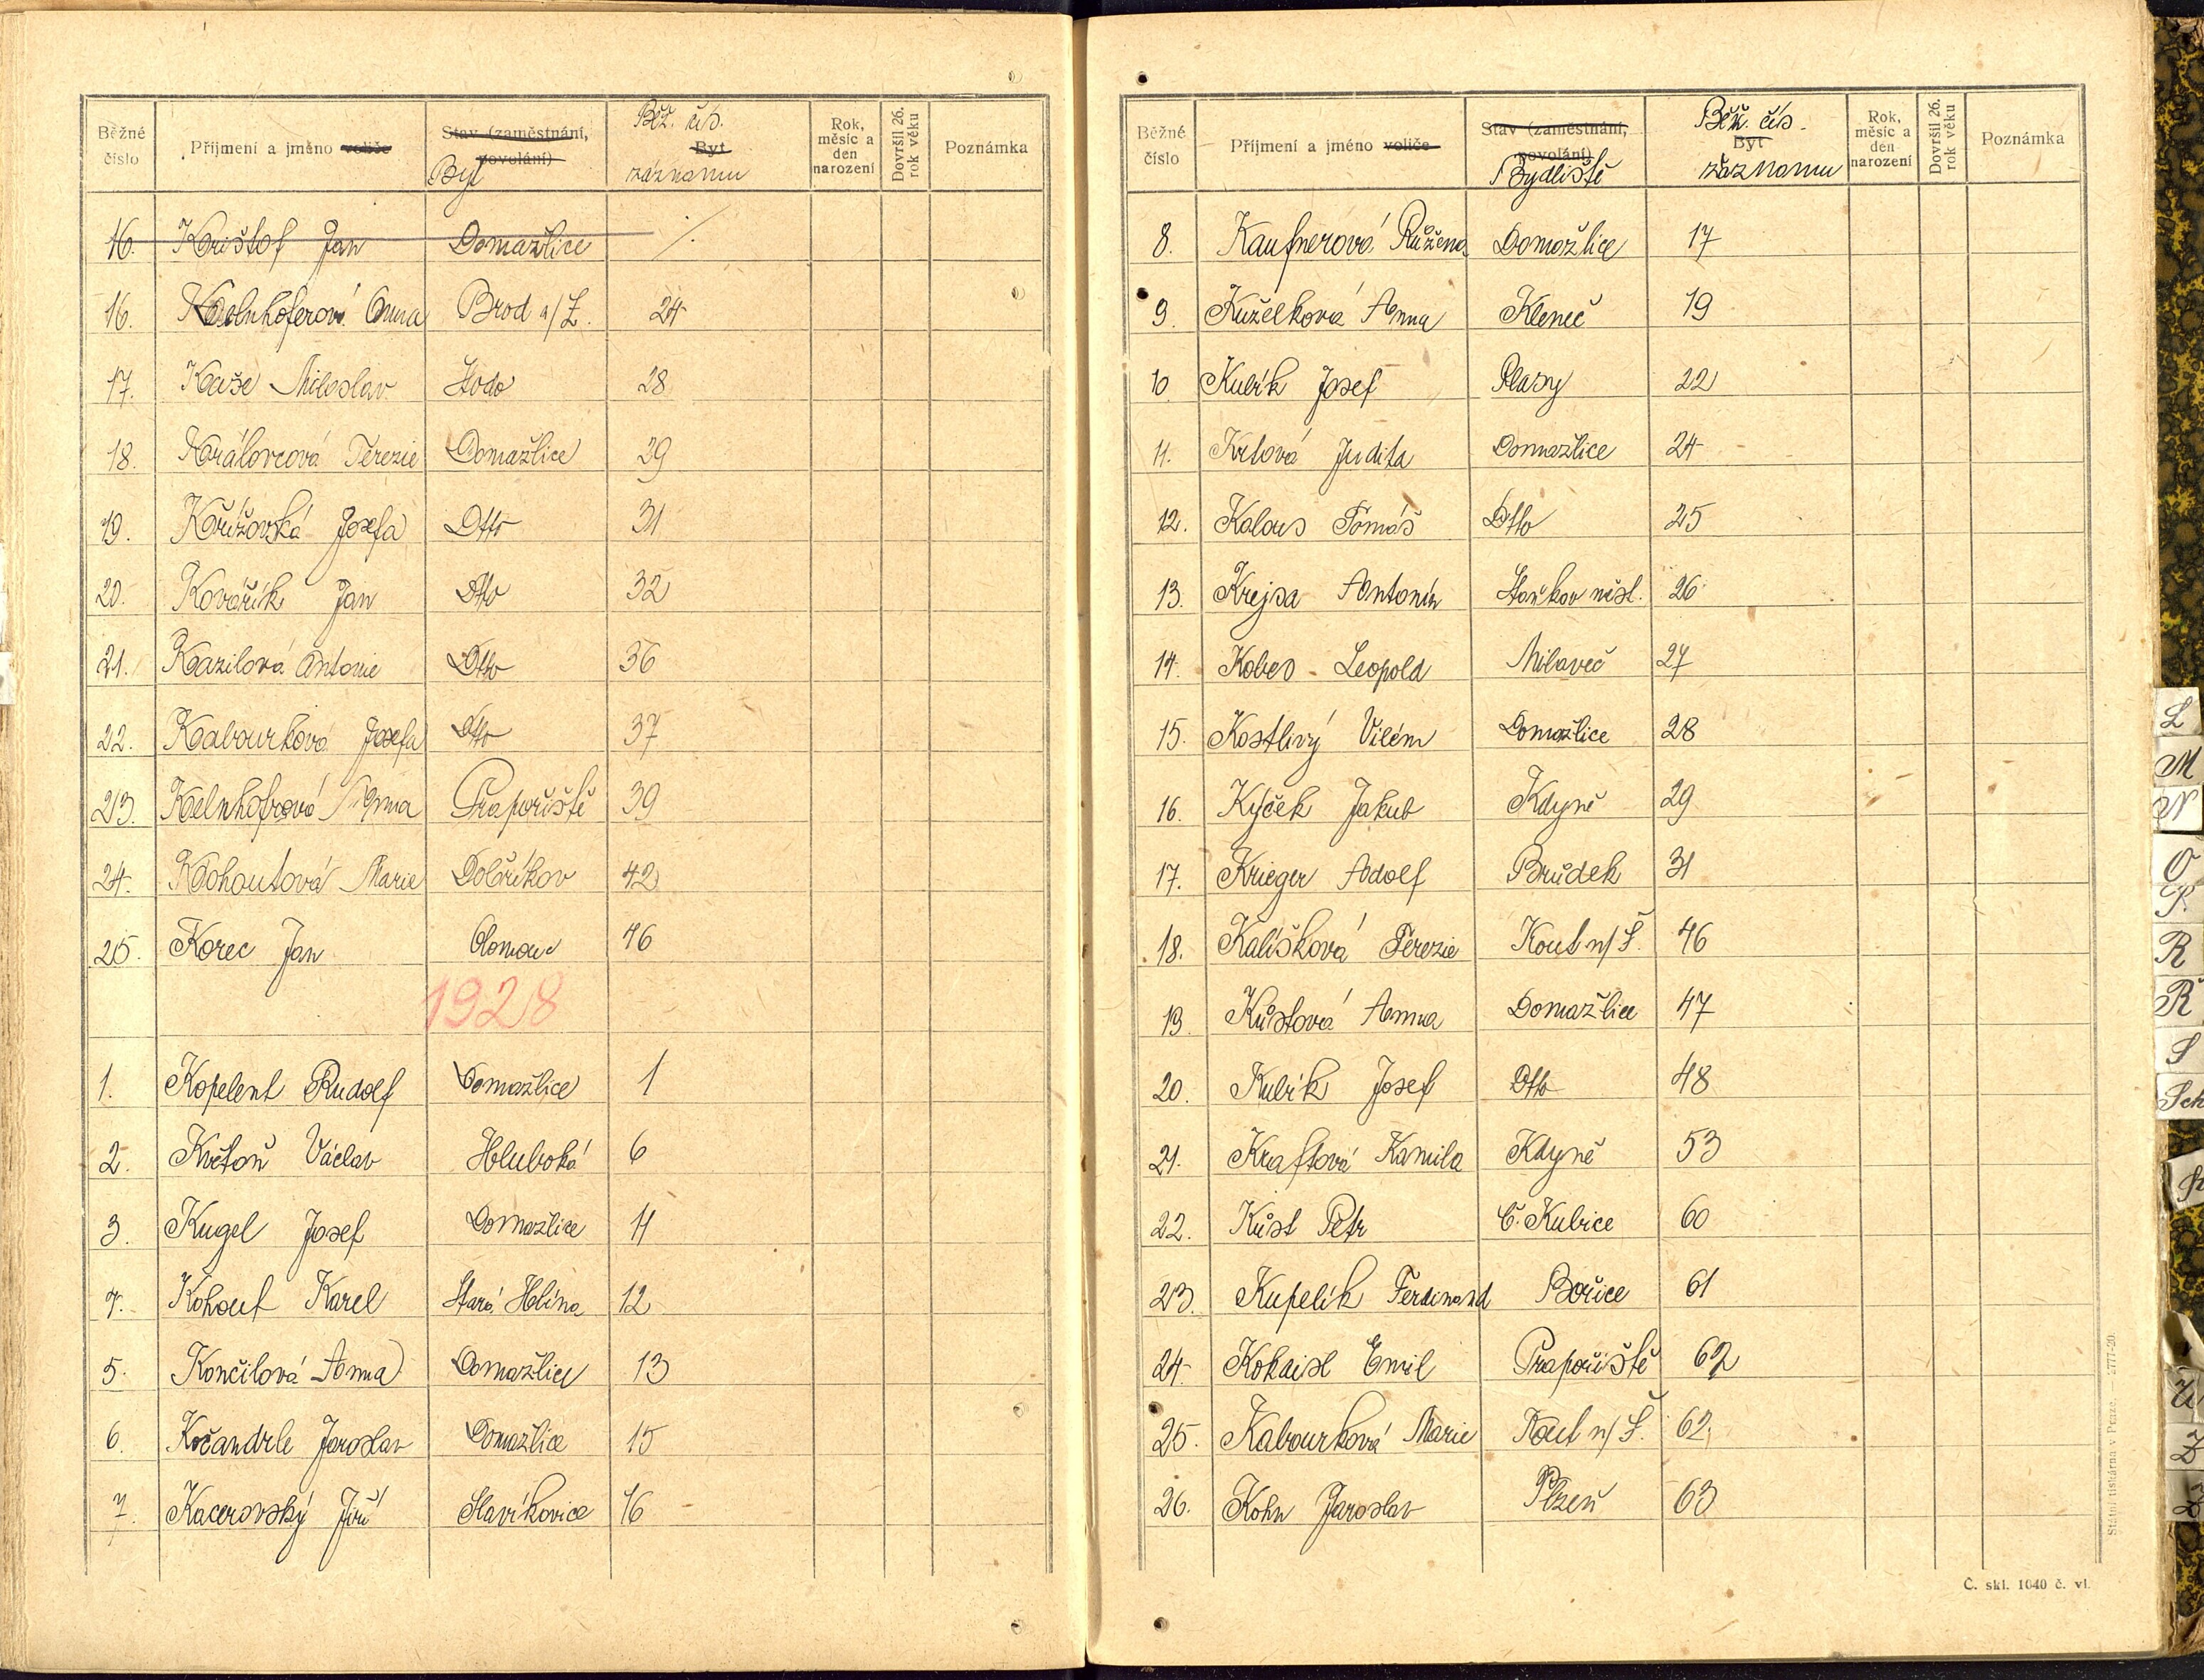 Běžné číslo Příjmení a jméno voliče Stav (zaměstnání, povolání) Byt Běž. čís. Byt záznamu Rok, měsíc a den narození Dovršil 26. rok věku Poznámka
16. Krištof Jan Domažlice /.
16. Kolnhoferová Anna Brod n/L. 24
17. Kaše Miloslav Stodo 28
18. Královcová Terezie Domažlice 29
19. Křížovská Josefa Dtto 31
20. Kovářík Jan Dtto 32
21. Kazilová Antonie Dtto 36
22. Kabourková Josefa Dtto 37
23. Kelnhofrová Anna Prapořiště 39
24. Kohoutová Marie Dobříkov 42
25. Korec Jan Olomouc 46
1928
1. Kopelent Rudolf Domažlice 1
2. Květoň Václav Hluboká 6
3. Kugel Josef Domažlice 11
4. Kohout Karel Stará Hlína 12
5. Končilová Anna Domažlice 13
6. Kočandrle Jaroslav Domažlice 15
7. Kacerovský Jiří Slavíkovice 16
Běžné číslo Příjmení a jméno voliče Stav (zaměstnání, povolání) Bydliště Běž. čís. Byt záznamu Rok, měsíc a den narození Dovršil 26. rok věku Poznámka
8. Kaufnerová Růžena Domažlice 17
9. Kuželková Anna Kleneč 19
10 Kubík Josef Plasy 22
11. Krlová Judita Domažlice 24
12. Kalous Tomáš Dtto 25
13. Krejsa Antonín Staňkov měst. 26
14. Kobes Leopold Milaveč 27
15. Kostlivý Vilém Domažlice 28
16. Kýček Jakub Kdyně 29
17. Krieger Adolf Brůdek 31
18. Kalíšková Terezie Kout n/Š. 46
19. Kůstová Anna Domažlice 47
20. Kubík Josef Dtto 48
21. Kraftová Kamila Kdyně 53
22. Kůst Petr Č. Kubice 60
23. Kupelík Ferdinand Bořice 61
24. Kokaisl Emil Prapořiště 62
25. Kabourková Marie Kout n/Š. 62.
26. Kohn Jaroslav Plzeň 63
Státní tiskárna v Praze. — 2777-20.
Č. skl. 1040 č. vl.
L
M
N
O
P.
R
Ř
S
Sch
U
Z
Ž